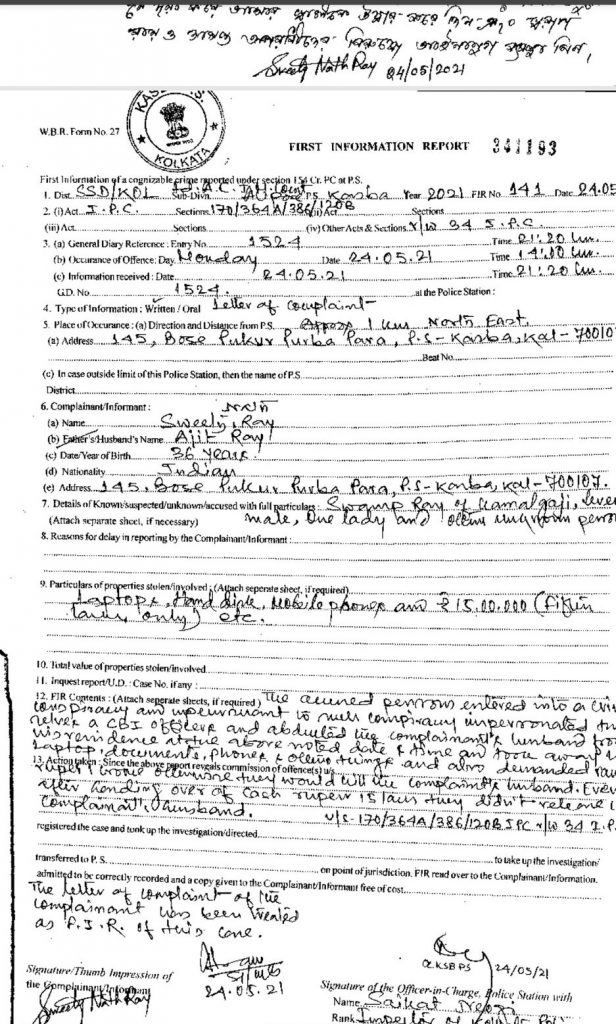 Sweety Nath Ray 24/05/2021
KOLKATA
W.B.R. Form No. 27
FIRST INFORMATION REPORT 341193
First Information of a cognizable crime reported under section 154 Cr. PC at P.S.
1. Dist. SSD/KOL Sub-Divn. Alipore P.S. Kasba Year 2021 FIR No. 141 Date 24.05
2. (i) Act I.P.C. Sections 170/364A/386/120B (ii) Act Sections
(iii) Act Sections (iv) Other Acts & Sections r/w 34 I.P.C
3. (a) General Diary Reference : Entry No. 1524 Time 21:20 hrs.
(b) Occurance of Offence : Day Monday Date 24.05.21 Time 14:00 hrs
(c) Information received : Date 24.05.21 Time 21:20 hrs.
G.D. No. 1524. at the Police Station :
4. Type of Information : Written / Oral Letter of Complaint
5. Place of Occurance : (a) Direction and Distance from P.S. Approx 1 km North East,
(a) Address 145, Bose Pukur Purba Para, P.S- Kasba, Kol- 70010
Beat No.
(c) In case outside limit of this Police Station, then the name of P.S
District
6. Complainant/Informant : Nath
(a) Name Sweety Ray
(b) Father's/Husband's Name Ajit Ray
(c) Date/Year of Birth 36 years.
(d) Nationality Indian
(e) Address 145, Bose Pukur Purba Para, P.S- Kasba, Kol-700107.
7. Details of Known/suspected/unknown/accused with full particulars : Swarup Ray of Kamalgaji, seve
(Attach separate sheet, if necessary) male, One lady and others unknown person
8. Reasons for delay in reporting by the Complainant/Informant :
9. Particulars of properties stolen/involved : (Attach seperate sheet, if required)
Laptops, Hand disk, Mobile phones and ₹ 15,00,000 (Fifteen
lacs only) etc.
10. Total value of properties stolen/involved
11. Inquest report/U.D. : Case No. if any :
12. FIR Contents : (Attach seperate sheets, if required) The accused persons entered into a
conspiracy and in pursuant to such conspiracy impersonated
selves a CBI officers and abducted the complainant's husband from
his residence at the above noted date & time and took away
Laptop, documents, phones & others things and also demanded
13. Action taken : Since the above report reveals commission of offence(s) u/s
rupees 1 crore otherwise they would kill the complainant's husband. Even
after handing over of cash rupees 15 lacs they didn't release
complainant's husband. u/s-170/364A/386/120B IPC r/w 34 I.P.
registered the case and took up the investigation/directed
to take up the investigation/
transferred to P. S. on point of jurisdiction. FIR read over to the Complainant/Informant.
admitted to be correctly recorded and a copy given to the Complainant/Informant free of cost
The letter of complaint of the
complainant has been treated
as F.I.R. of this case.
Signature/Thumb Impression of
the Complainant/Informant
Sweety Nath Ray
24.05.21
24/05/21
Signature of the Officer-in-Charge, Police Station with
Name Saikat
Rank Inspector of